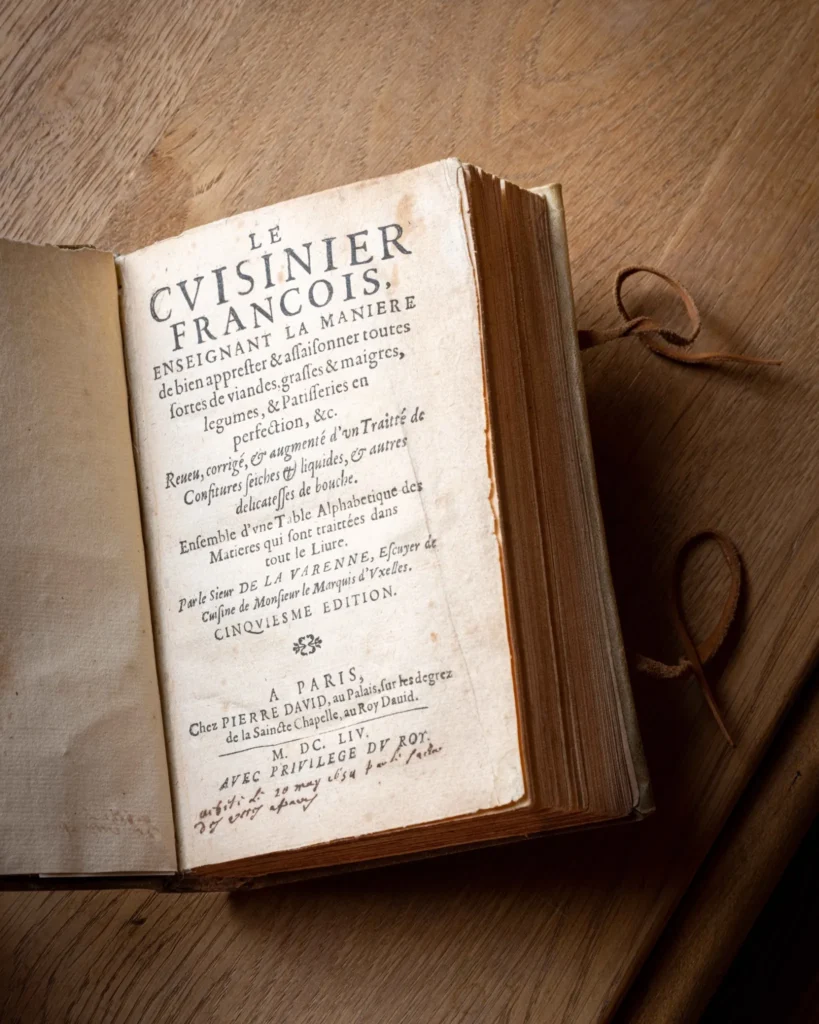 LE
CVISINIER
FRANCOIS,
ENSEIGNANT LA MANIERE
de bien appreſter & aſſaiſonner toutes
ſortes de viandes, graſſes & maigres,
legumes, & Patiſſeries en
perfection, &c.
Reueu, corrigé, & augmenté d'vn Traitté de
Confitures ſeiches & liquides, & autres
delicateſſes de bouche.
Enſemble d'vne Table Alphabetique des
Matieres qui ſont traittées dans
tout le Liure.
Par le Sieur DE LA VARENNE, Eſcuyer de
Cuiſine de Monſieur le Marquis d'Vxelles.
CINQVIESME EDITION.
A PARIS,
Chez PIERRE DAVID, au Palais, ſur les degrez
de la Saincte Chapelle, au Roy Dauid.
M. DC. LIV.
AVEC PRIVILEGE DV ROY.
20 may 1654